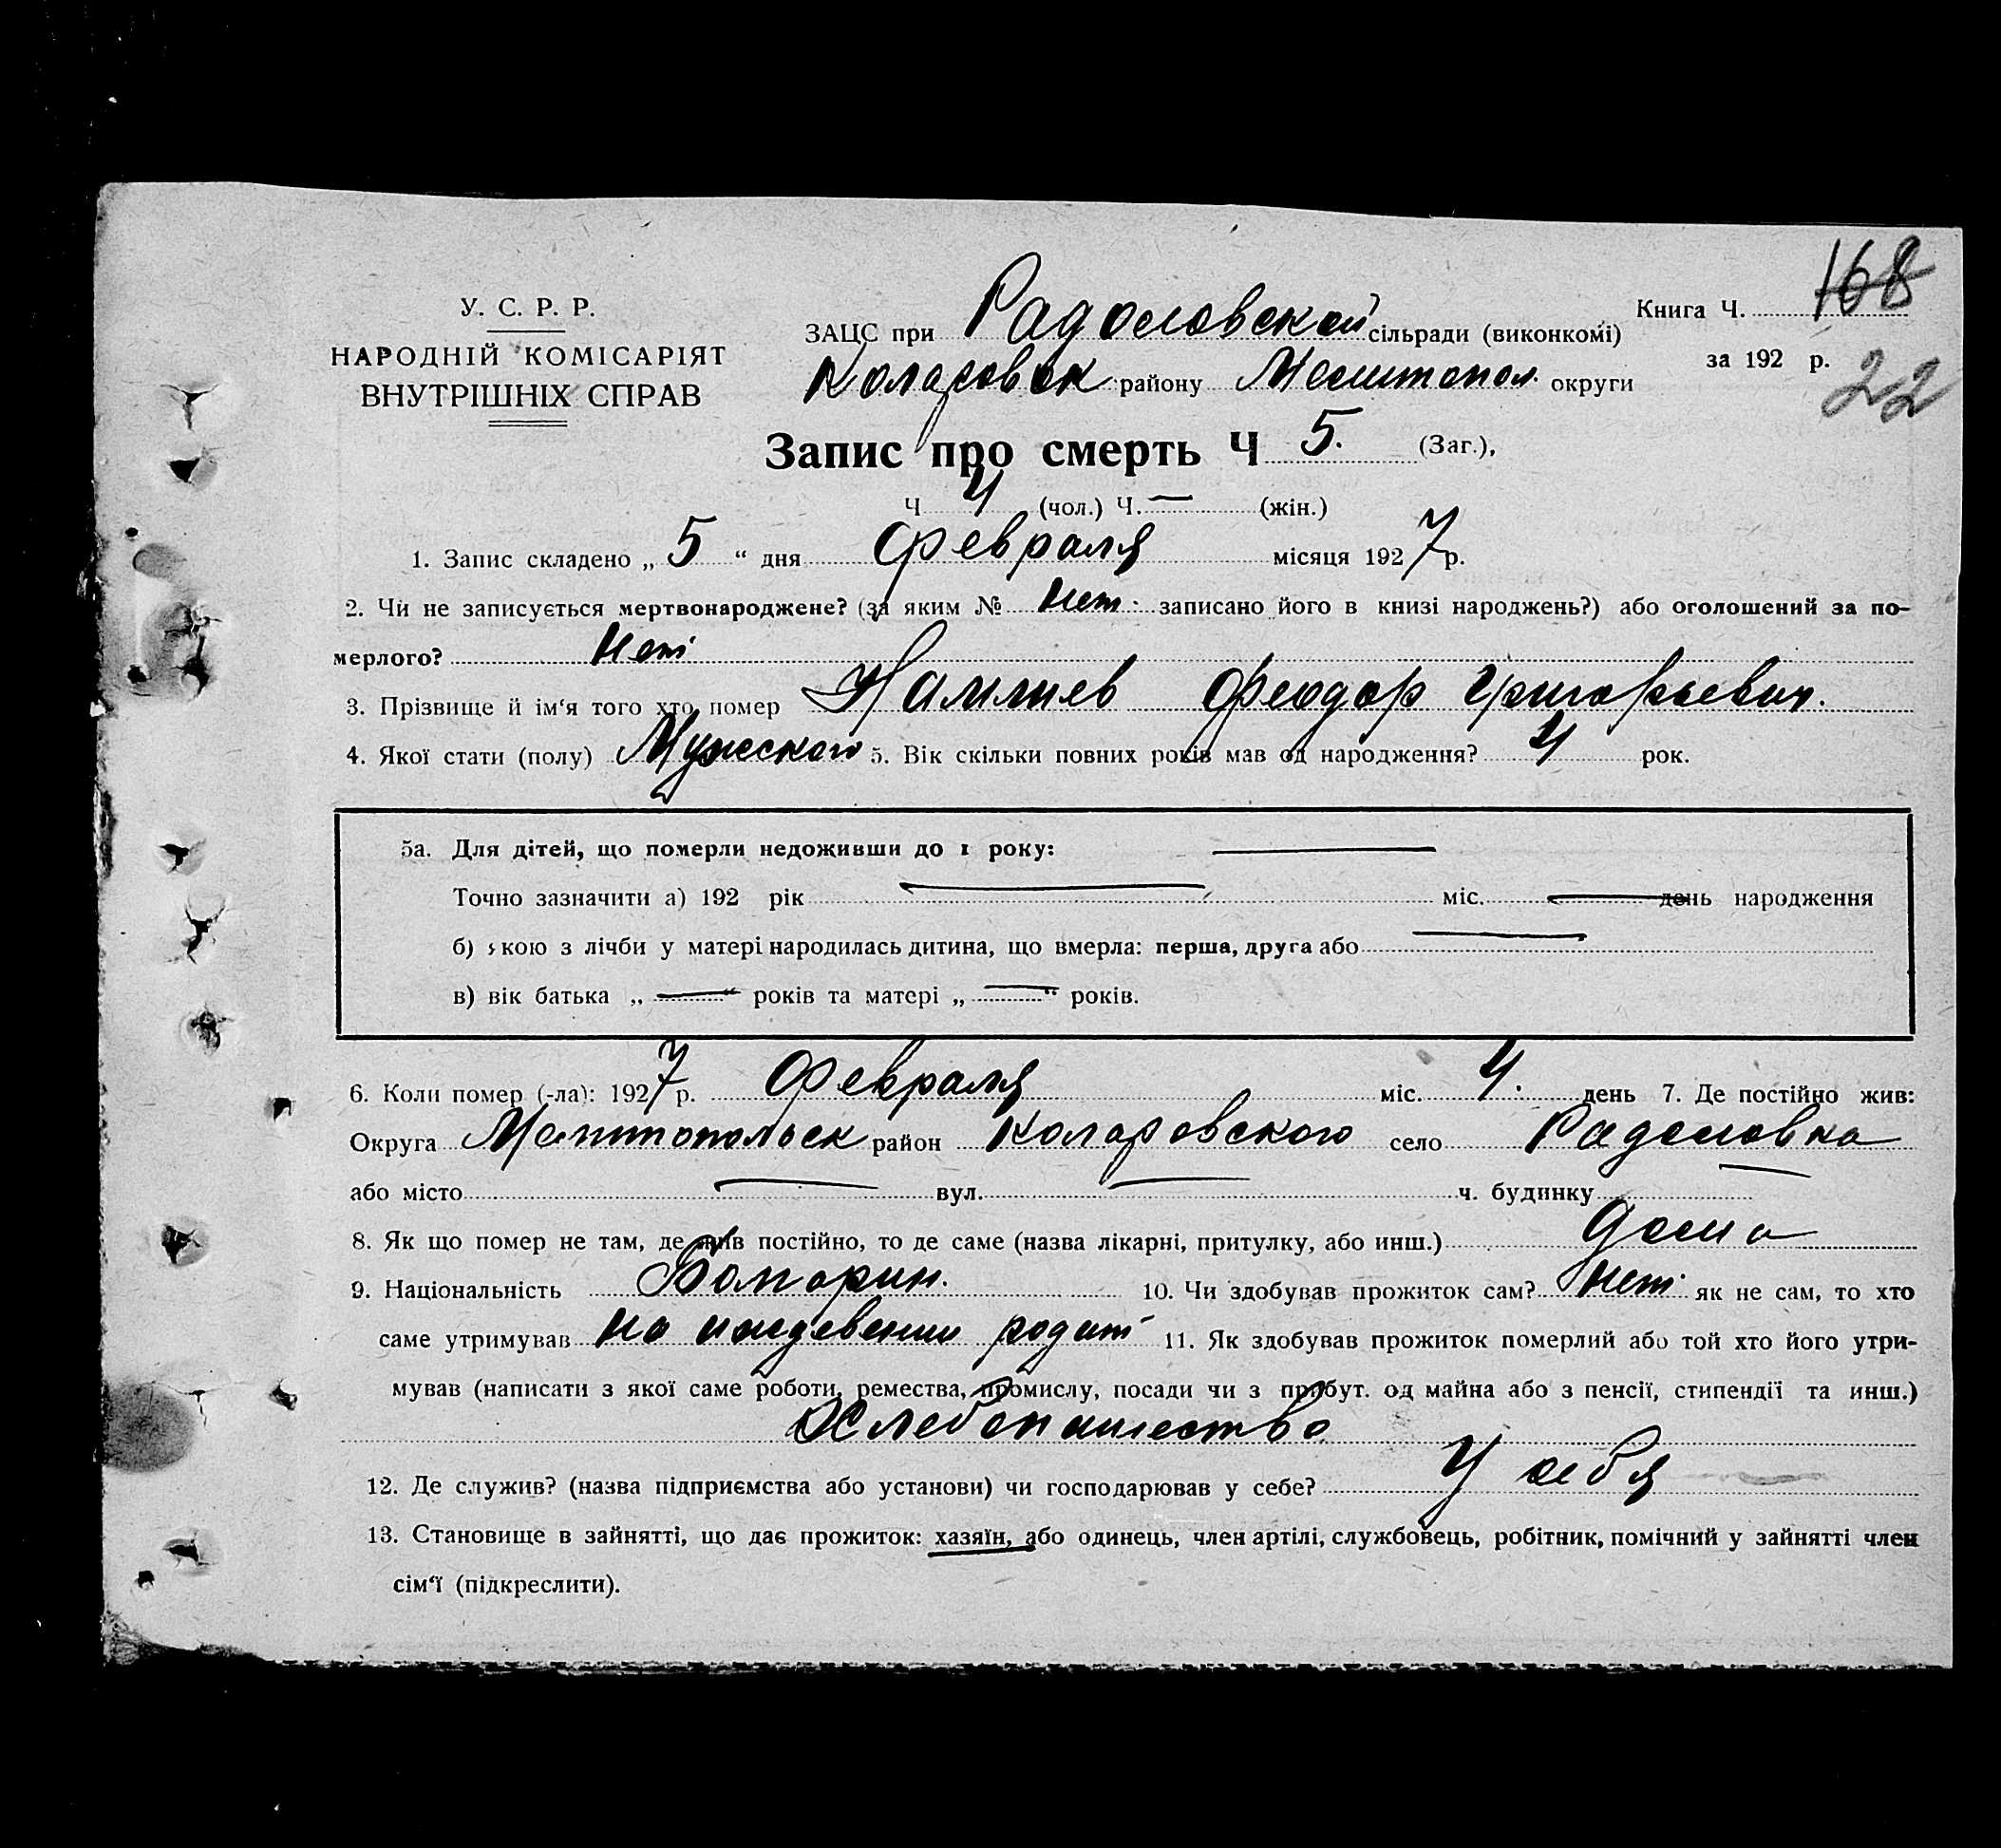 У. С. Р. Р.
НАРОДНІЙ КОМІСАРІЯТ
ВНУТРІШНІХ СПРАВ
ЗАЦС при Радоловской сільради (виконкомі)
Коларовск району Мелитопол. округи
Книга Ч. 168
за 192 р.
22
Запис про смерть Ч 5. (Заг.),
Ч 4 (чол.) Ч. — (жін.)
1. Запис складено „ 5 “ дня Февраля місяця 1927 р.
2. Чи не записується мертвонароджене? (за яким № Нет. записано його в книзі народжень?) або оголошений за по-
мерлого? Нет
3. Прізвище й ім‘я того хто помер Феодор Григорьевич.
4. Якої стати (полу) Мужеского 5. Вік скільки повних років мав од народження? 4 рок.
5а. Для дітей, що померли недоживши до 1 року: —
Точно зазначити а) 192 рік — міс. — день народження
б) якою з лічби у матері народилась дитина, що вмерла: перша, друга або —
в) вік батька „ — “ років та матері „ — “ років.
6. Коли помер (-ла): 1927 р. Февраля міс. 4. день 7. Де постійно жив:
Округа Мелитопольск район Коларовского село Радоловка
або місто — вул. — ч. будинку —
8. Як що помер не там, де жив постійно, то де саме (назва лікарні, притулку, або инш.) дома
9. Національність Болгарин. 10. Чи здобував прожиток сам? Нет. як не сам, то хто
саме утримував на иждевении родит 11. Як здобував прожиток померлий або той хто його утри-
мував (написати з якої саме роботи, ремества, промислу, посади чи з прибут. од майна або з пенсії, стипендії та инш.)
Хлебопашество
12. Де служив? (назва підприємства або установи) чи господарював у себе? У себя
13. Становище в зайнятті, що дає прожиток: хазяїн, або одинець, член артілі, службовець, робітник, помічний у зайнятті член
сім‘ї (підкреслити).